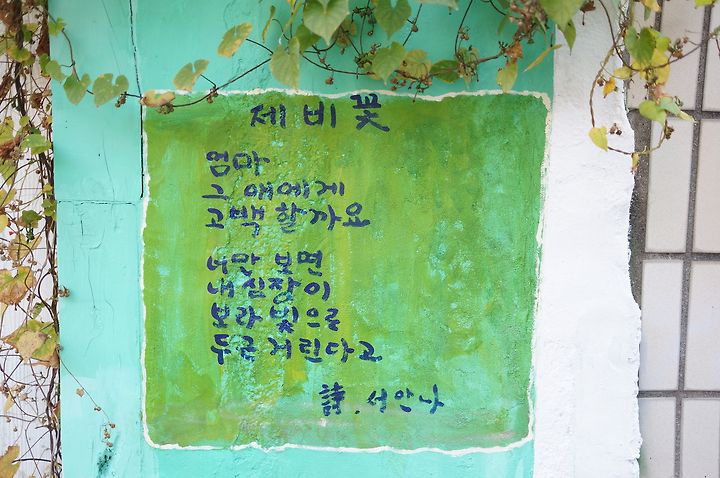 제비꽃
엄마
그 애에게
고백할까요
너만 보면
내 심장이
보라빛으로
두근거린다고
詩. 서안나